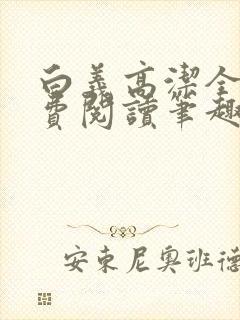 白義高潔全
費閱讀筆趣
安東尼奧班德